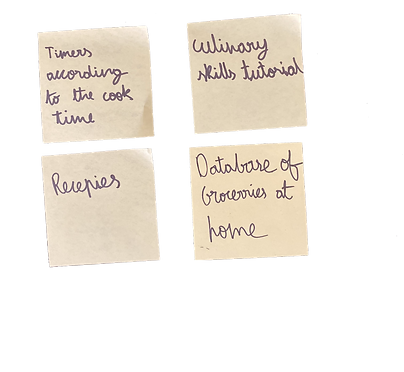 Timers
according
to the cook
time
culinary
skills tutorial
Recepies
Database of
Groceries at
home